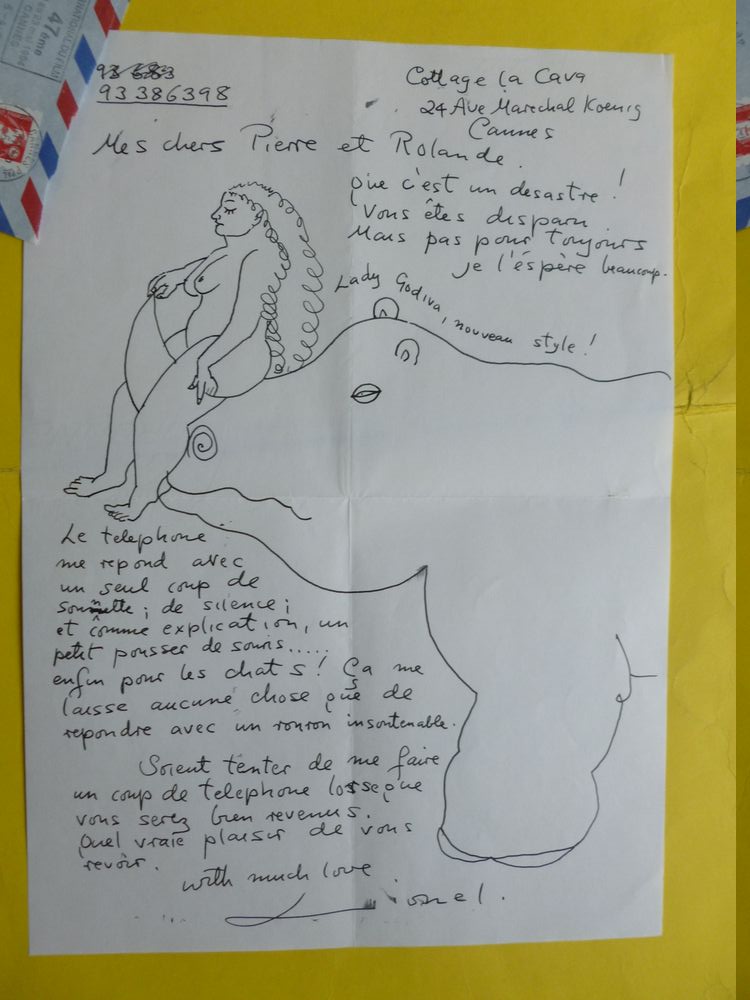 93 386398
Cottage La Cava
24 Ave Marechal Koenig
Cannes
Mes chers Pierre et Rolande.
Que c'est un desastre !
Vous êtes disparu.
Mais pas pour toujours
je l'éspère beaucoup.
Lady Godiva, nouveau style !
Le telephone
me repond avec
un seul coup de
sonnette ; de silence ;
et comme explication, un
petit pousser de souris.....
enfin pour les chats ! Ça me
laisse aucune chose que de
repondre avec un ronron insoutenable.
Soient tenter de me faire
un coup de telephone losseque
vous serez bien revenus.
Quel vraie plaisir de vous
revoir.
with much love
Lionel.
47ème
CANNES